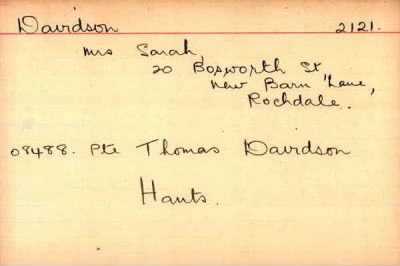 Davidson 2121.
Mrs Sarah
20 Bosworth St
New Barn Lane,
Rochdale.
08488. Pte Thomas Davidson
Hants.